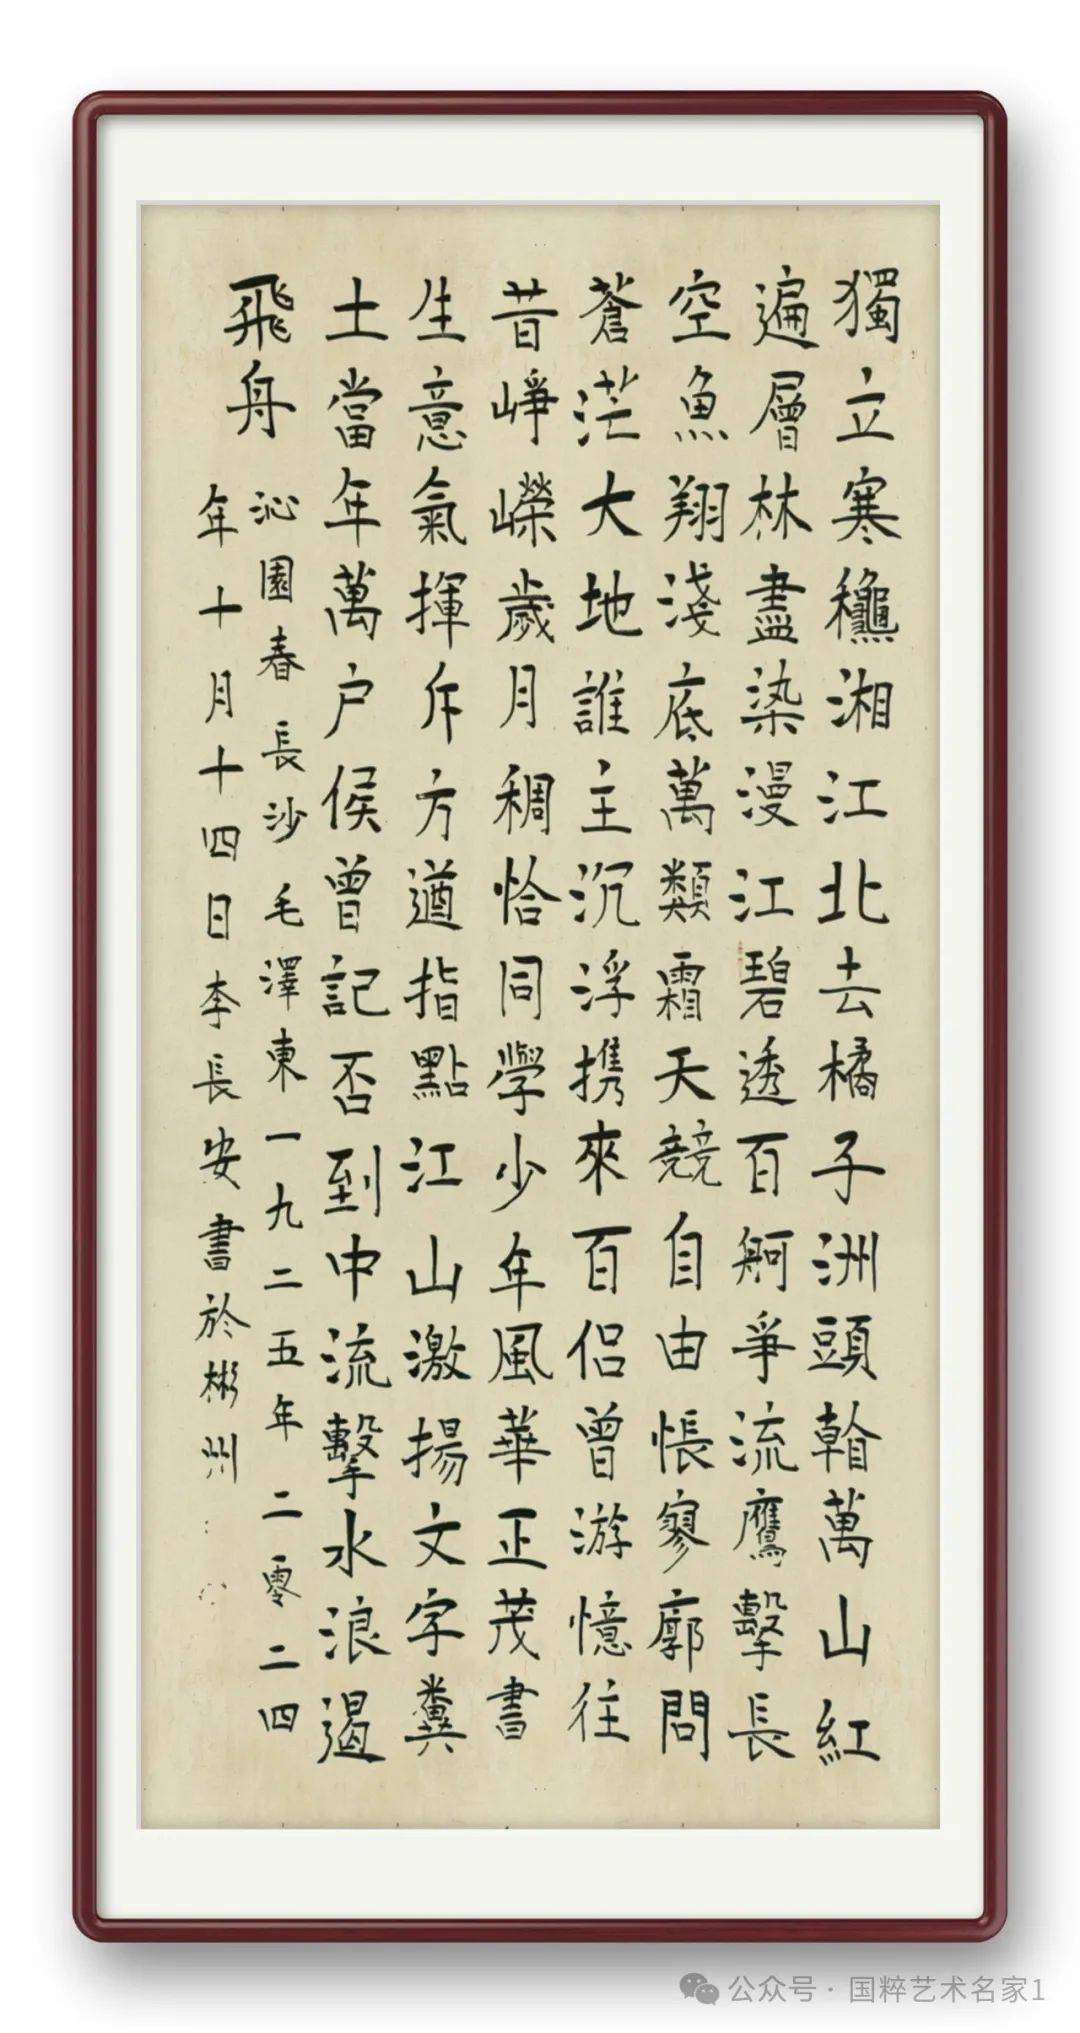 獨立寒龝湘江北去橘子洲頭看萬山紅
遍層林盡染漫江碧透百舸爭流鷹擊長
空魚翔淺底萬類霜天競自由悵寥廓問
蒼茫大地誰主沉浮携來百侣曾游憶往
昔崢嶸歲月稠恰同學少年風華正茂書
生意氣揮斥方遒指點江山激揚文字糞
土當年萬户侯曾記否到中流擊水浪遏
飛舟
沁園春長沙毛澤東一九二五年二零二四
年十月十四日李長安書於彬州
公众号·国粹艺术名家1